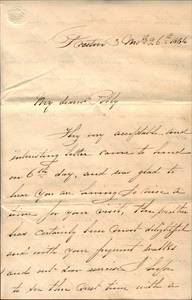 3 Mo 26th 1866
My dear Polly
Thy very acceptable and
interesting letter came to hand
on 6th day, and was glad to
hear you are having so nice a
time for your visit, the
has certainly been most delightful
and with your frequent walks
and out door exercise I hope
to see thee next time with a